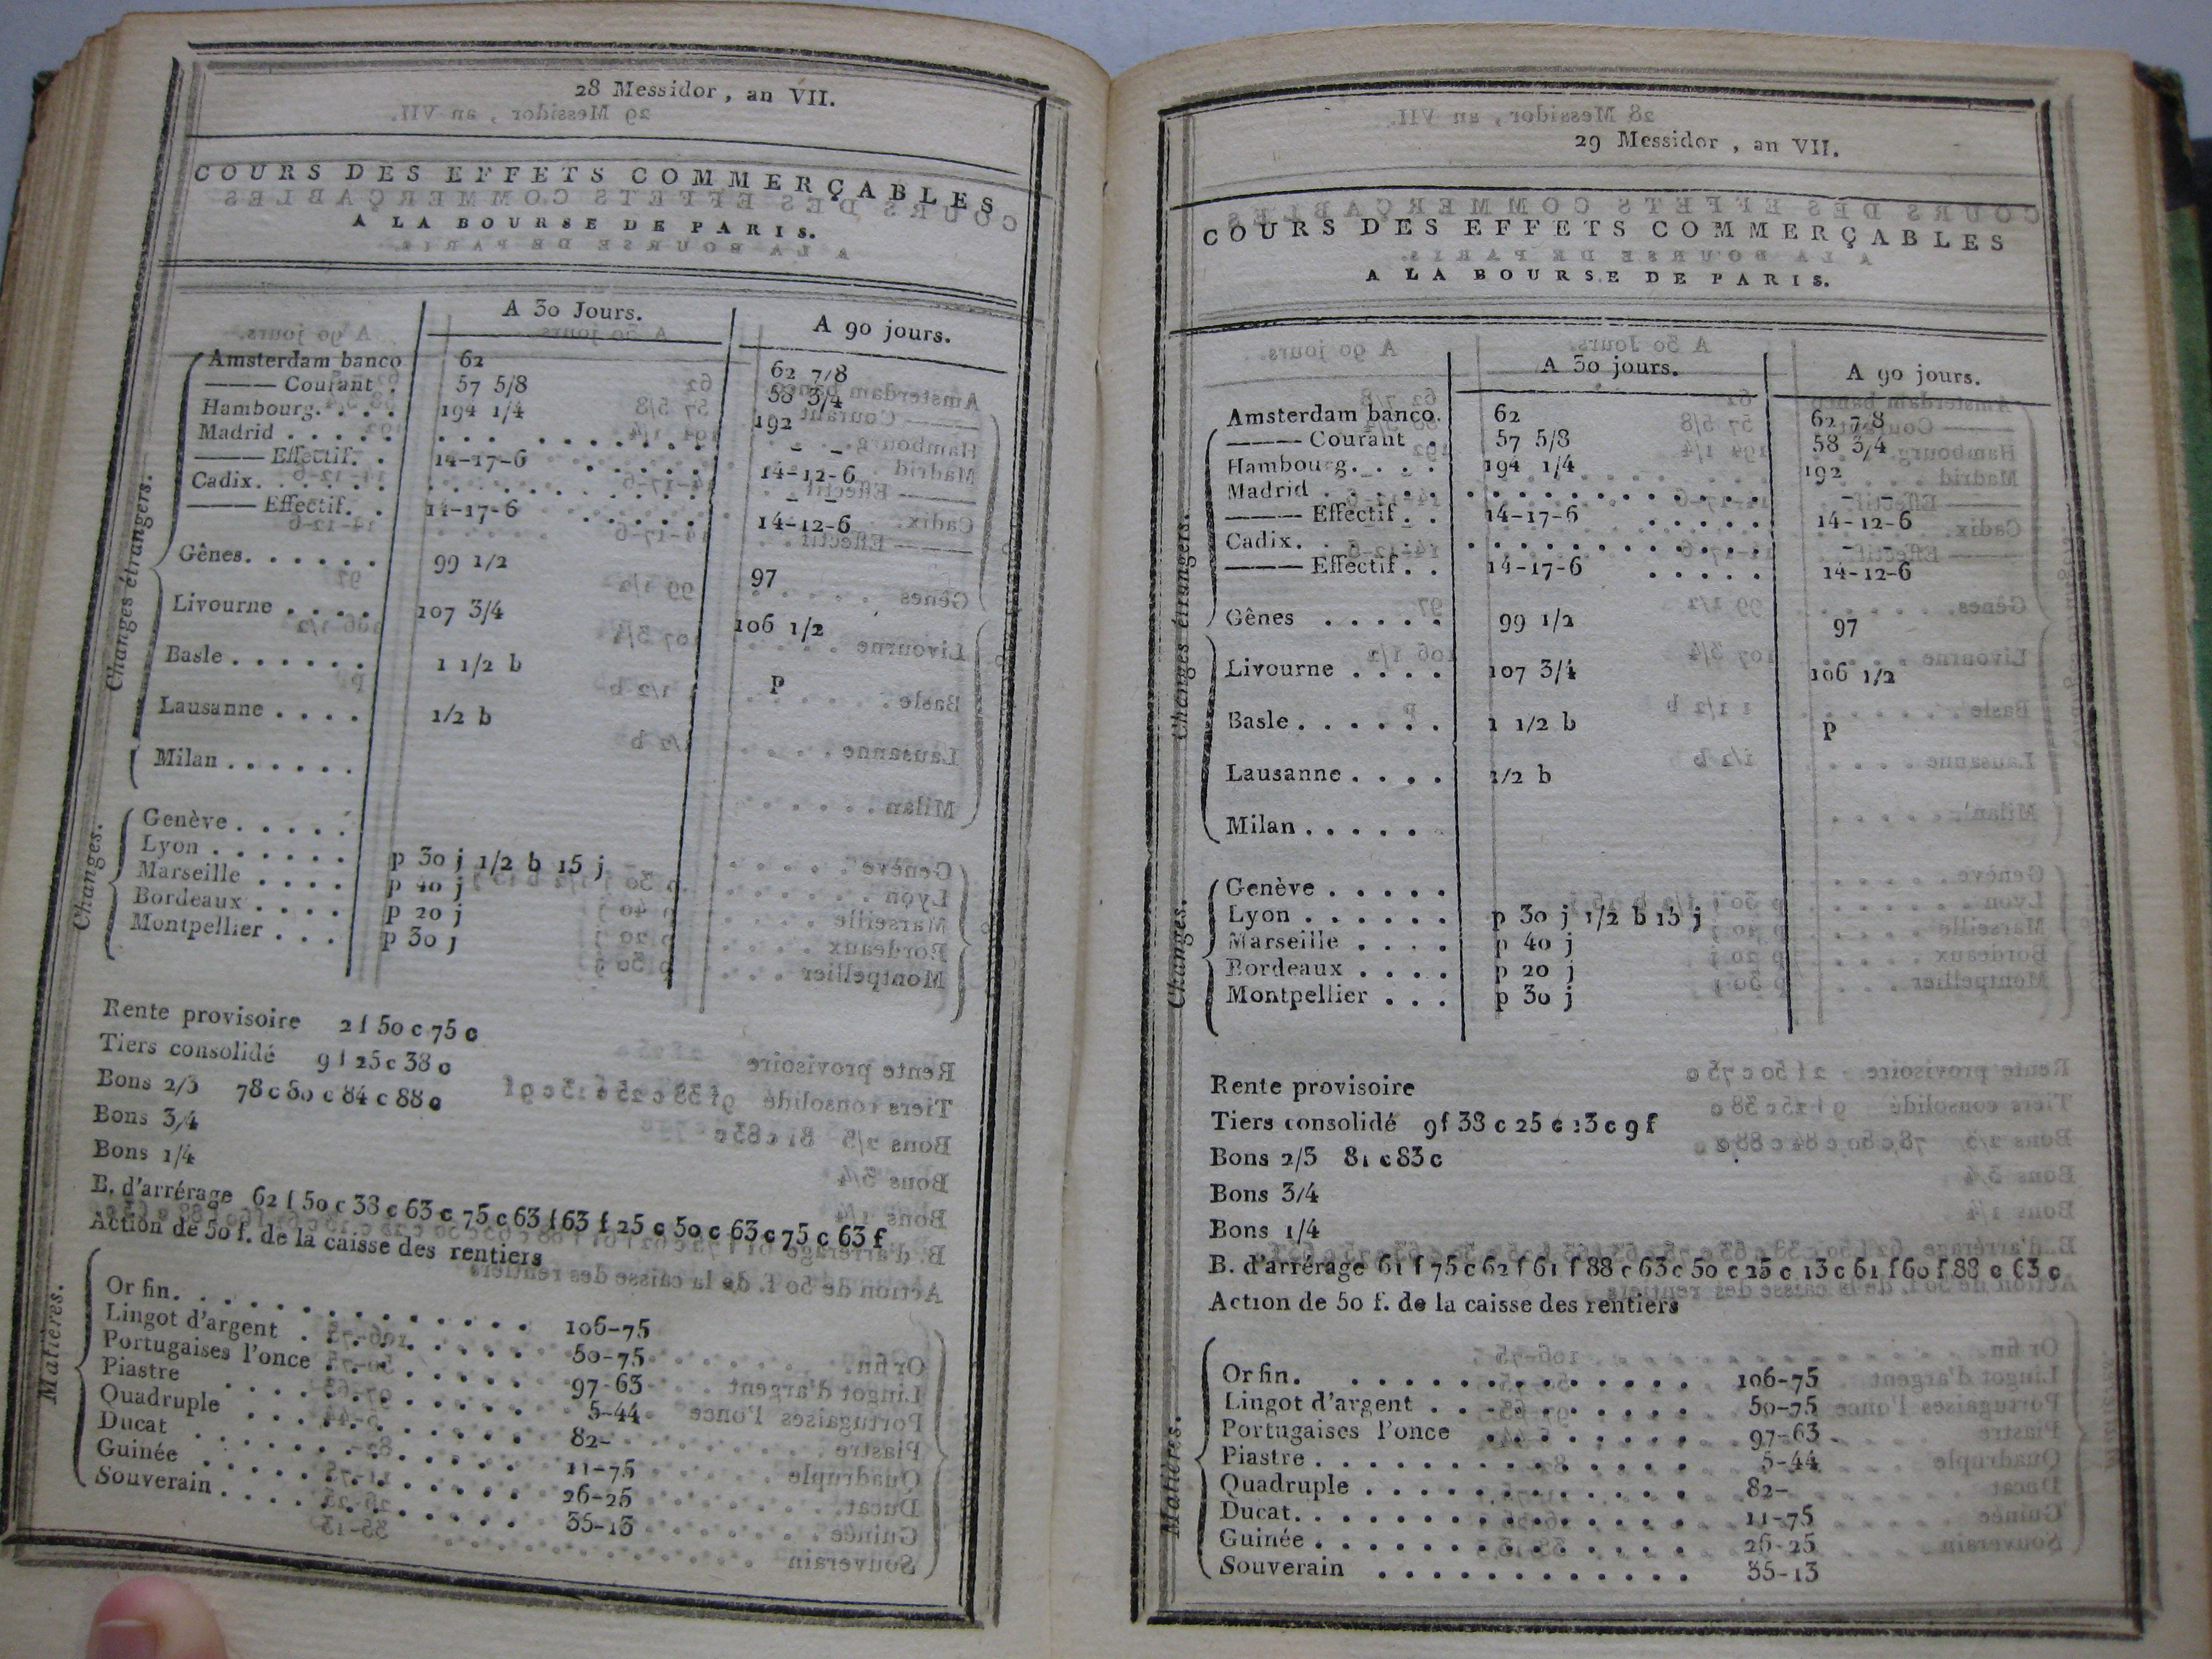 28 Messidor, an VII.
COURS DES EFFETS COMMERÇABLES
A LA BOURSE DE PARIS.
A 30 Jours. A 90 jours.
Changes étrangers.
Amsterdam banco 62 62 7/8
——— Courant . 57 5/8 58 3/4
Hambourg. . . . 194 1/4 192
Madrid . . . . . . . . . . . . . . . - -
——— Effectif. . 14-17-6 . . . . . 14-12-6
Cadix. . . . . . . . . . . . . . . . - -
——— Effectif. . 14-17-6 . . . . . 14-12-6
Gênes. . . . . . 99 1/2 97
Livourne . . . . 107 3/4 106 1/2
Basle . . . . . . 1 1/2 b P
Lausanne . . . . 1/2 b
Milan . . . . . .
Changes.
Genève . . . . .
Lyon . . . . . . p 30 j 1/2 b 15 j
Marseille . . . . p 40 j
Bordeaux . . . . p 20 j
Montpellier . . . p 30 j
Rente provisoire 2 f 50 c 75 c
Tiers consolidé 9 f 25 c 38 c
Bons 2/3 78 c 80 c 84 c 88 c
Bons 3/4
Bons 1/4
B. d'arrérage 62 f 50 c 38 c 63 c 75 c 63 f 63 f 25 c 50 c 63 c 75 c 63 f
Action de 50 f. de la caisse des rentiers
Matières.
Or fin. . . . . . . . . . . . . 106-75
Lingot d'argent . . . . . . . . 50-75
Portugaises l'once . . . . . . . 97-63
Piastre . . . . . . . . . . . . 5-44
Quadruple . . . . . . . . . . . 82-
Ducat . . . . . . . . . . . . . 11-75
Guinée . . . . . . . . . . . . 26-25
Souverain . . . . . . . . . . . 35-13
29 Messidor, an VII.
COURS DES EFFETS COMMERÇABLES
A LA BOURSE DE PARIS.
A 30 jours. A 90 jours.
Changes étrangers.
Amsterdam banco. 62 62 7/8
——— Courant . 57 5/8 58 3/4
Hambourg. . . . 194 1/4 192
Madrid . . . . . . . . . . . . . . . - -
——— Effectif. . 14-17-6 . . . . . 14-12-6
Cadix. . . . . . . . . . . . . . . . -
——— Effectif. . 14-17-6 . . . . . 14-12-6
Gênes . . . . . 99 1/2 97
Livourne . . . . 107 3/4 106 1/2
Basle . . . . . . 1 1/2 b P
Lausanne . . . . 1/2 b
Milan . . . . .
Changes.
Genève . . . . .
Lyon . . . . . . p 30 j 1/2 b 15 j
Marseille . . . . p 40 j
Bordeaux . . . . p 20 j
Montpellier . . . p 30 j
Rente provisoire
Tiers consolidé 9 f 38 c 25 c 13 c 9 f
Bons 2/3 81 c 83 c
Bons 3/4
Bons 1/4
B. d'arrérage 61 f 75 c 62 f 61 f 88 c 63 c 50 c 25 c 13 c 61 f 60 f 88 c 63 c
Action de 50 f. de la caisse des rentiers
Matières.
Or fin. . . . . . . . . . . . . 106-75
Lingot d'argent . . . . . . . . 50-75
Portugaises l'once . . . . . . . 97-63
Piastre . . . . . . . . . . . . 5-44
Quadruple . . . . . . . . . . . 82-
Ducat. . . . . . . . . . . . . 11-75
Guinée . . . . . . . . . . . . 26-25
Souverain . . . . . . . . . . . 35-13